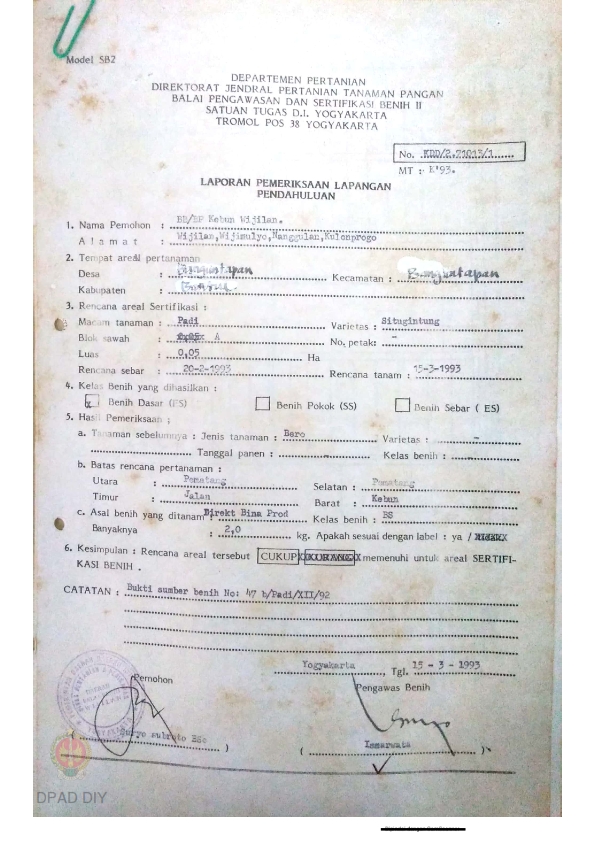 Model SB2
DEPARTEMEN PERTANIAN
DIREKTORAT JENDRAL PERTANIAN TANAMAN PANGAN
BALAI PENGAWASAN DAN SERTIFIKASI BENIH II
SATUAN TUGAS D.I. YOGYAKARTA
TROMOL POS 38 YOGYAKARTA
No. KDD/2.71013/1
MT : K'93.
LAPORAN PEMERIKSAAN LAPANGAN
PENDAHULUAN
1. Nama Pemohon : BB/BP Kebun Wijilan.
A l a m a t : Wijilan,Wijimulyo,Nanggulan,Kulonprogo
2. Tempat areal pertanaman
Desa : Banguntapan Kecamatan : Banguntapan
Kabupaten : Bantul
3. Rencana areal Sertifikasi :
Macam tanaman : Padi Varietas : Situgintung
Blok sawah : A No. petak: -
Luas : 0,05 Ha
Rencana sebar : 20-2-1993 Rencana tanam : 15-3-1993
4. Kelas Benih yang dihasilkan :
x Benih Dasar (ES) Benih Pokok (SS) Benih Sebar ( ES)
5. Hasil Pemeriksaan :
a. Tanaman sebelumnya : Jenis tanaman : Bero Varietas : -
Tanggal panen : - Kelas benih : -
b. Batas rencana pertanaman :
Utara : Pematang Selatan : Pematang
Timur : Jalan Barat : Kebun
c. Asal benih yang ditanam : Direkt Bina Prod Kelas benih : BS
Banyaknya : 2,0 kg. Apakah sesuai dengan label : ya /
6. Kesimpulan : Rencana areal tersebut CUKUP KURANG memenuhi untuk areal SERTIFI-
KASI BENIH .
CATATAN : Bukti sumber benih No: 47 b/Padi/XII/92
Yogyakarta , Tgl. 15 - 3 - 1993
Pemohon Pengawas Benih
( Suryo subroto BSc ) ( )
DPAD DIY